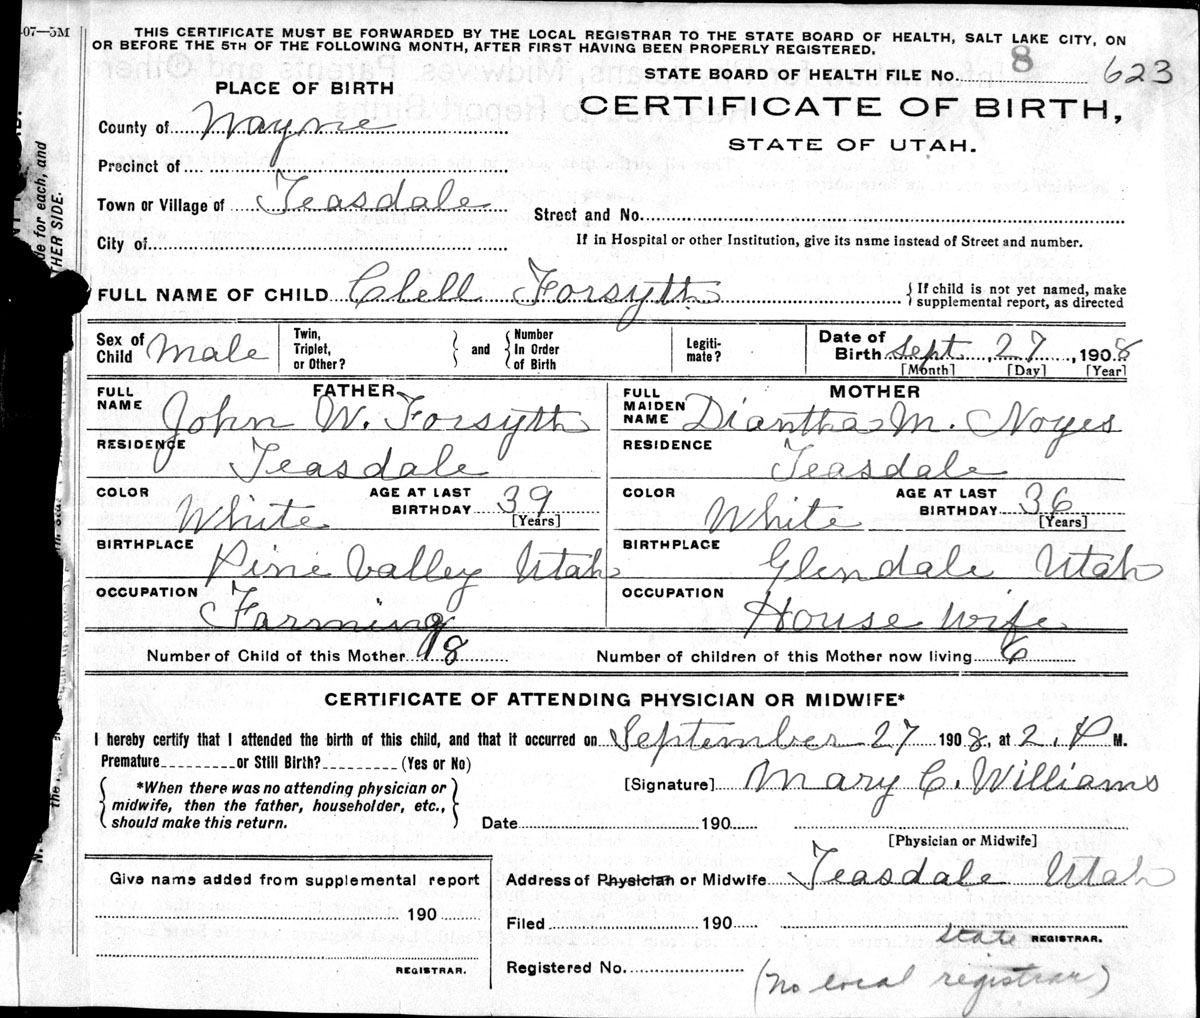 07—5M
THIS CERTIFICATE MUST BE FORWARDED BY THE LOCAL REGISTRAR TO THE STATE BOARD OF HEALTH, SALT LAKE CITY, ON
OR BEFORE THE 5TH OF THE FOLLOWING MONTH, AFTER FIRST HAVING BEEN PROPERLY REGISTERED.
STATE BOARD OF HEALTH FILE No. 8 623
PLACE OF BIRTH
CERTIFICATE OF BIRTH,
STATE OF UTAH.
County of Wayne
Precinct of
Town or Village of Teasdale
Street and No.
City of
If in Hospital or other Institution, give its name instead of Street and number.
FULL NAME OF CHILD Clell Forsyth
If child is not yet named, make
supplemental report, as directed
Sex of Child Male
Twin, Triplet, or Other?
and
Number In Order of Birth
Legiti-mate?
Date of Birth Sept, 27, 1908
[Month] [Day] [Year]
FATHER
FULL NAME John W. Forsyth
MOTHER
FULL MAIDEN NAME Diantha M. Noyes
RESIDENCE Teasdale
RESIDENCE Teasdale
COLOR White
AGE AT LAST BIRTHDAY 39 [Years]
COLOR White
AGE AT LAST BIRTHDAY 36 [Years]
BIRTHPLACE Pine Valley Utah
BIRTHPLACE Glendale Utah
OCCUPATION Farming
OCCUPATION House wife
Number of Child of this Mother 8
Number of children of this Mother now living 6
CERTIFICATE OF ATTENDING PHYSICIAN OR MIDWIFE*
I hereby certify that I attended the birth of this child, and that it occurred on September 27 1908, at 2. P M.
Premature or Still Birth? (Yes or No)
[Signature] Mary C. Williams
*When there was no attending physician or
midwife, then the father, householder, etc.,
should make this return.
Date 190
[Physician or Midwife]
Give name added from supplemental report
190
REGISTRAR.
Address of Physician or Midwife Teasdale Utah
Filed 190
state REGISTRAR.
Registered No.
(No local registrar)
de for each, and
THER SIDE.